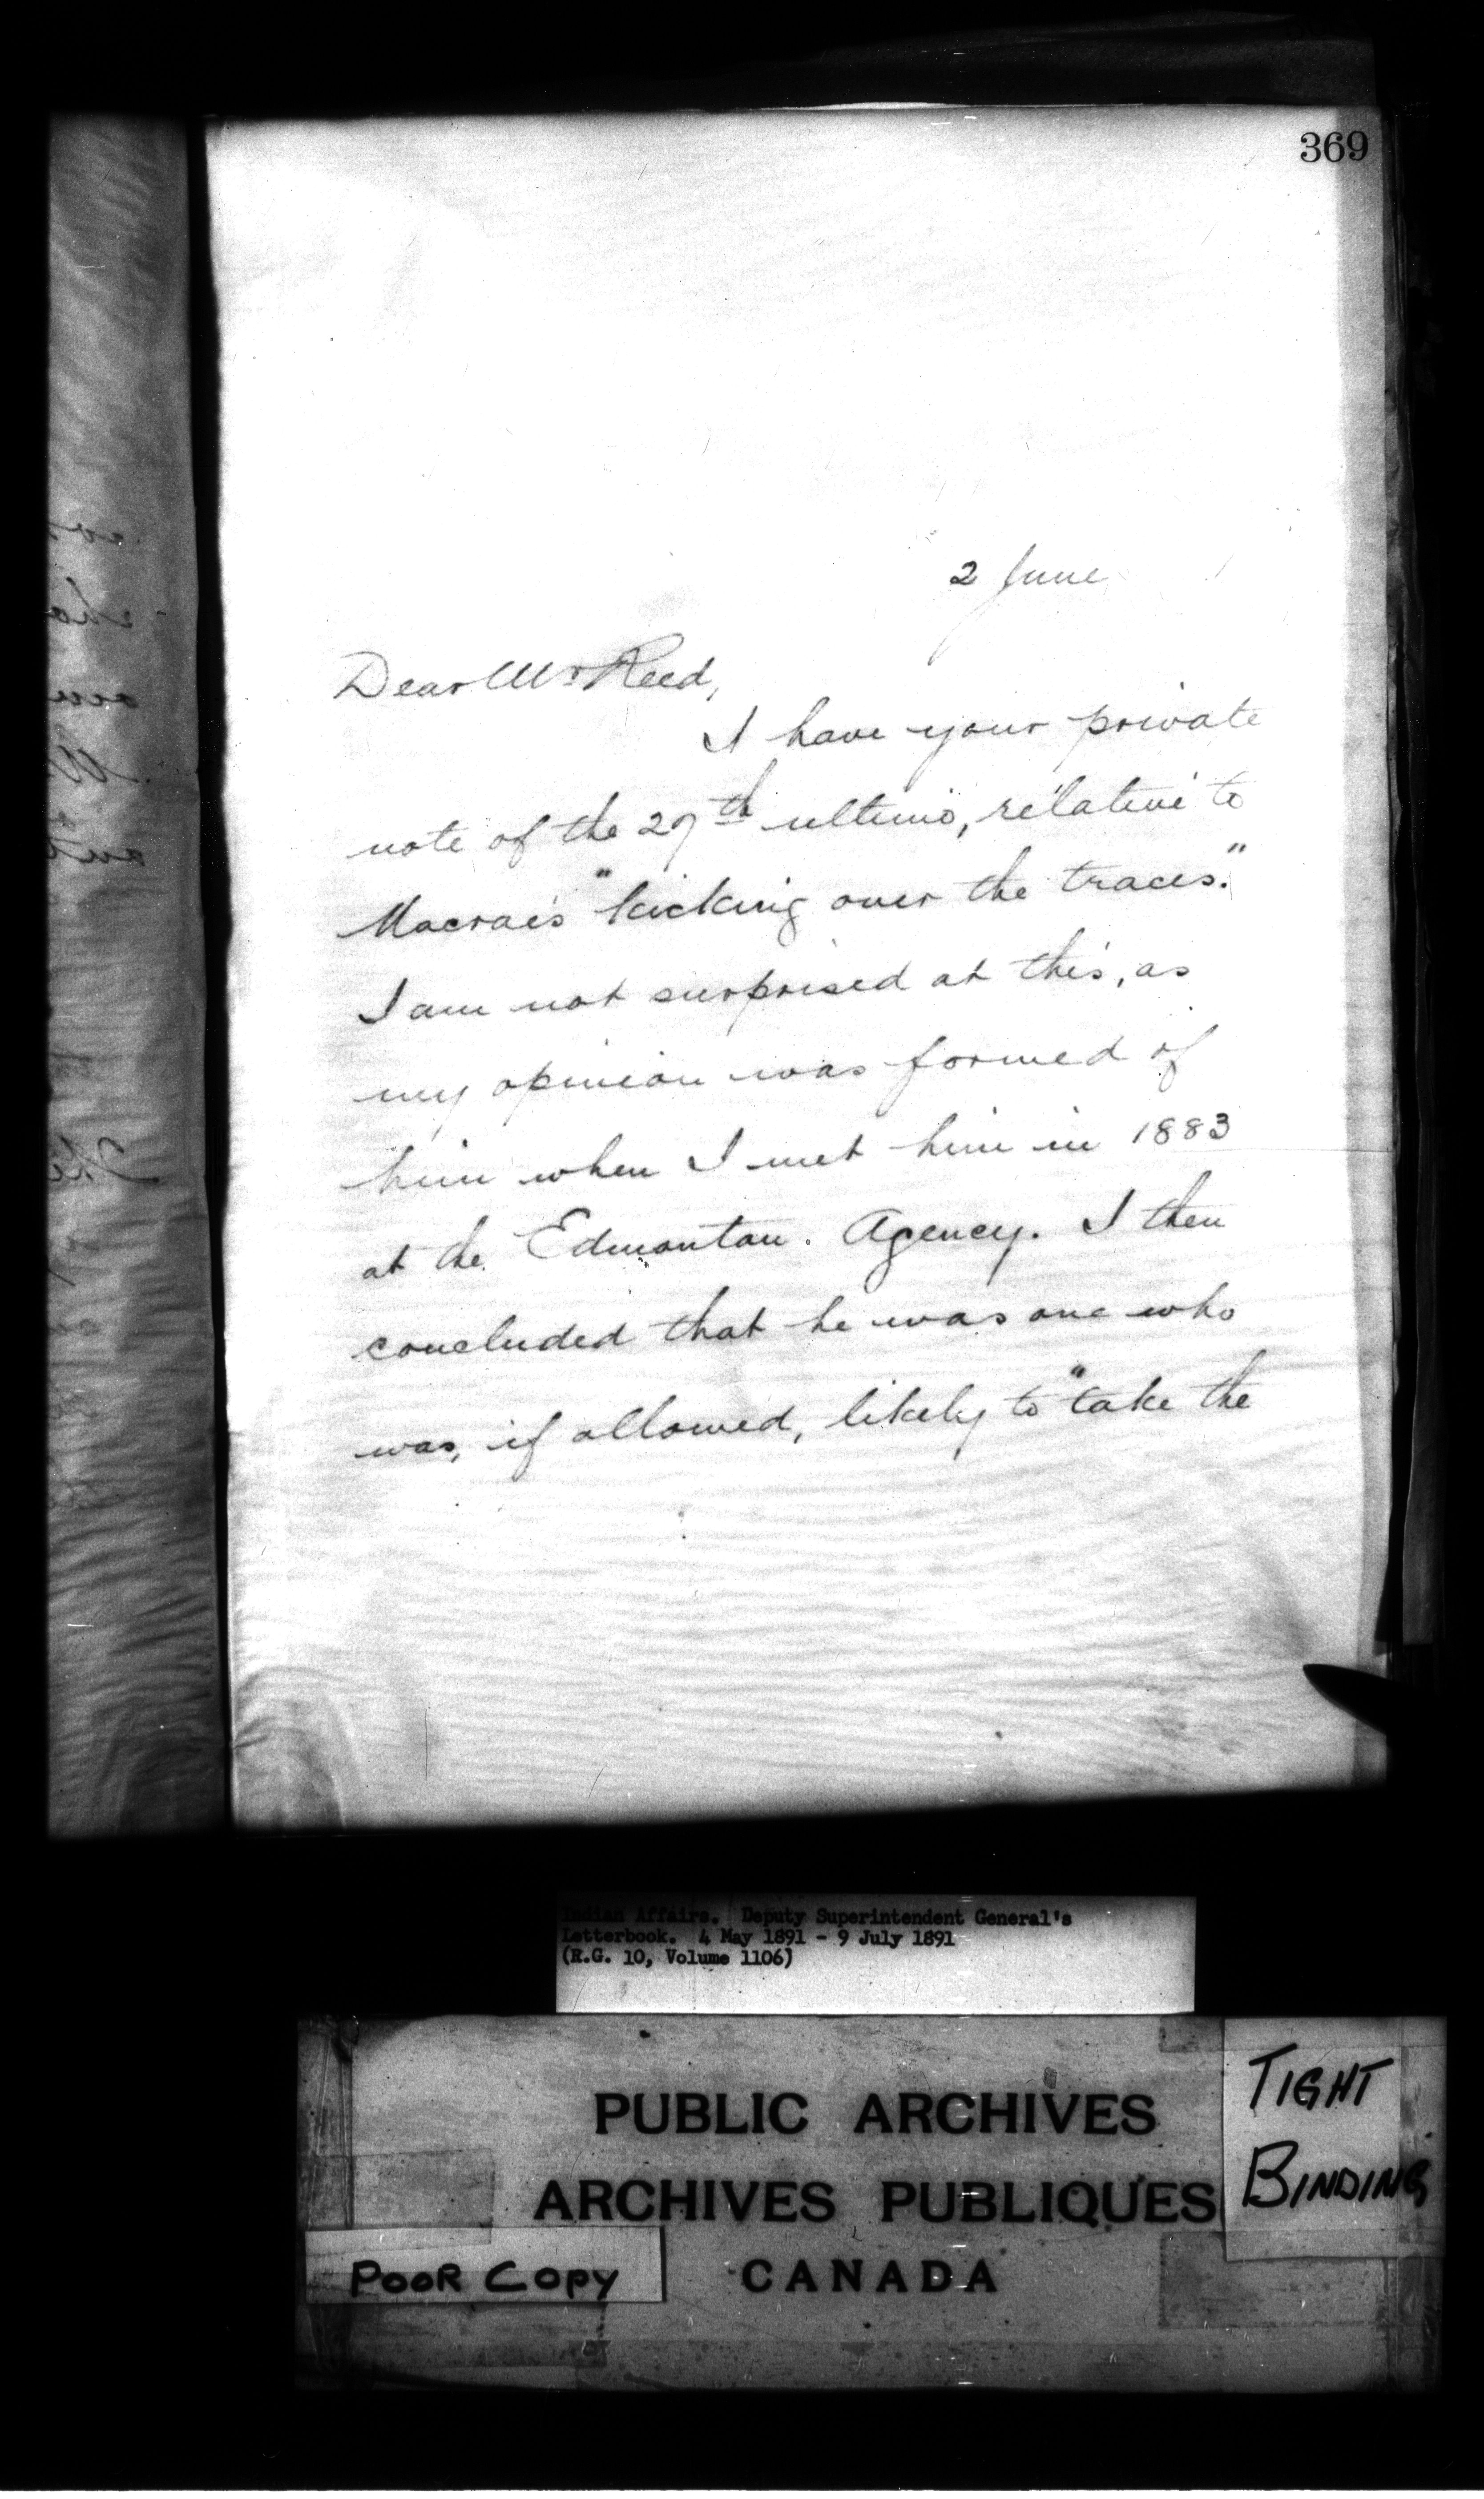 369
2 June
Dear Mr Reed,
I have your private
note of the 27th ultimo, relative to
Macrae's "kicking over the traces."
I am not surprised at this, as
my opinion was formed of
him when I met him in 1883
at the Edmonton Agency. I then
concluded that he was one who
was, if allowed, likely to "take the
Indian Affairs. Deputy Superintendent General's
Letterbook. 4 May 1891 - 9 July 1891
(R.G. 10, Volume 1106)
PUBLIC ARCHIVES
ARCHIVES PUBLIQUES
CANADA
TIGHT
BINDING
POOR COPY